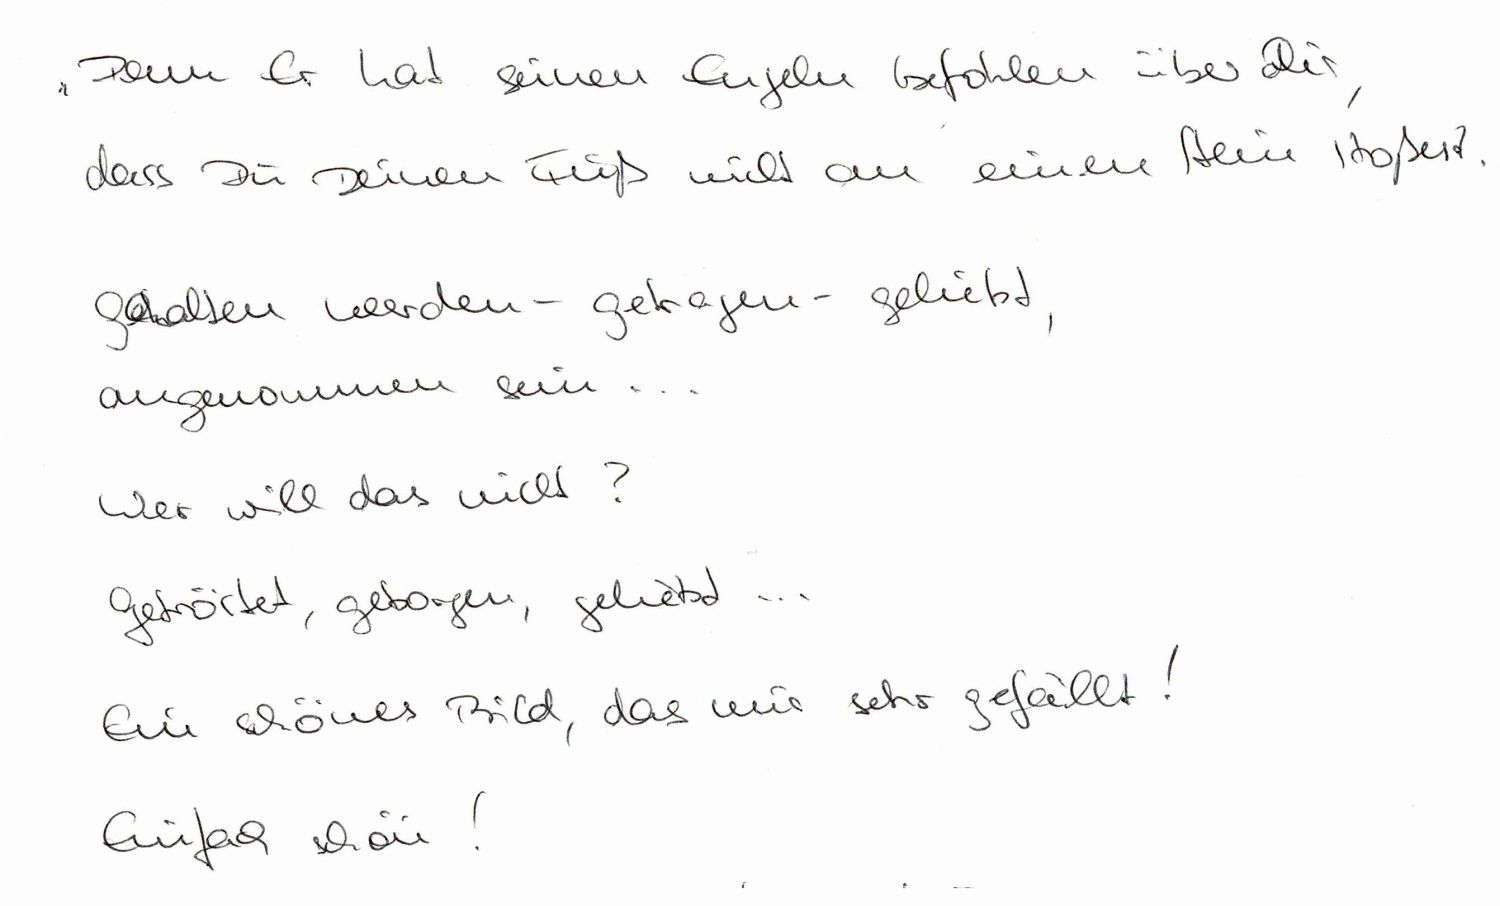 „Denn Er hat seinen Engeln befohlen über Dir,
dass Du Deinen Fuß nicht an einen Stein stoßest.
gehalten werden – getragen – geliebt,
angenommen sein ...
Wer will das nicht?
Getröstet, geborgen, geliebt ...
Ein schönes Bild, das mir sehr gefällt!
Einfach schön!